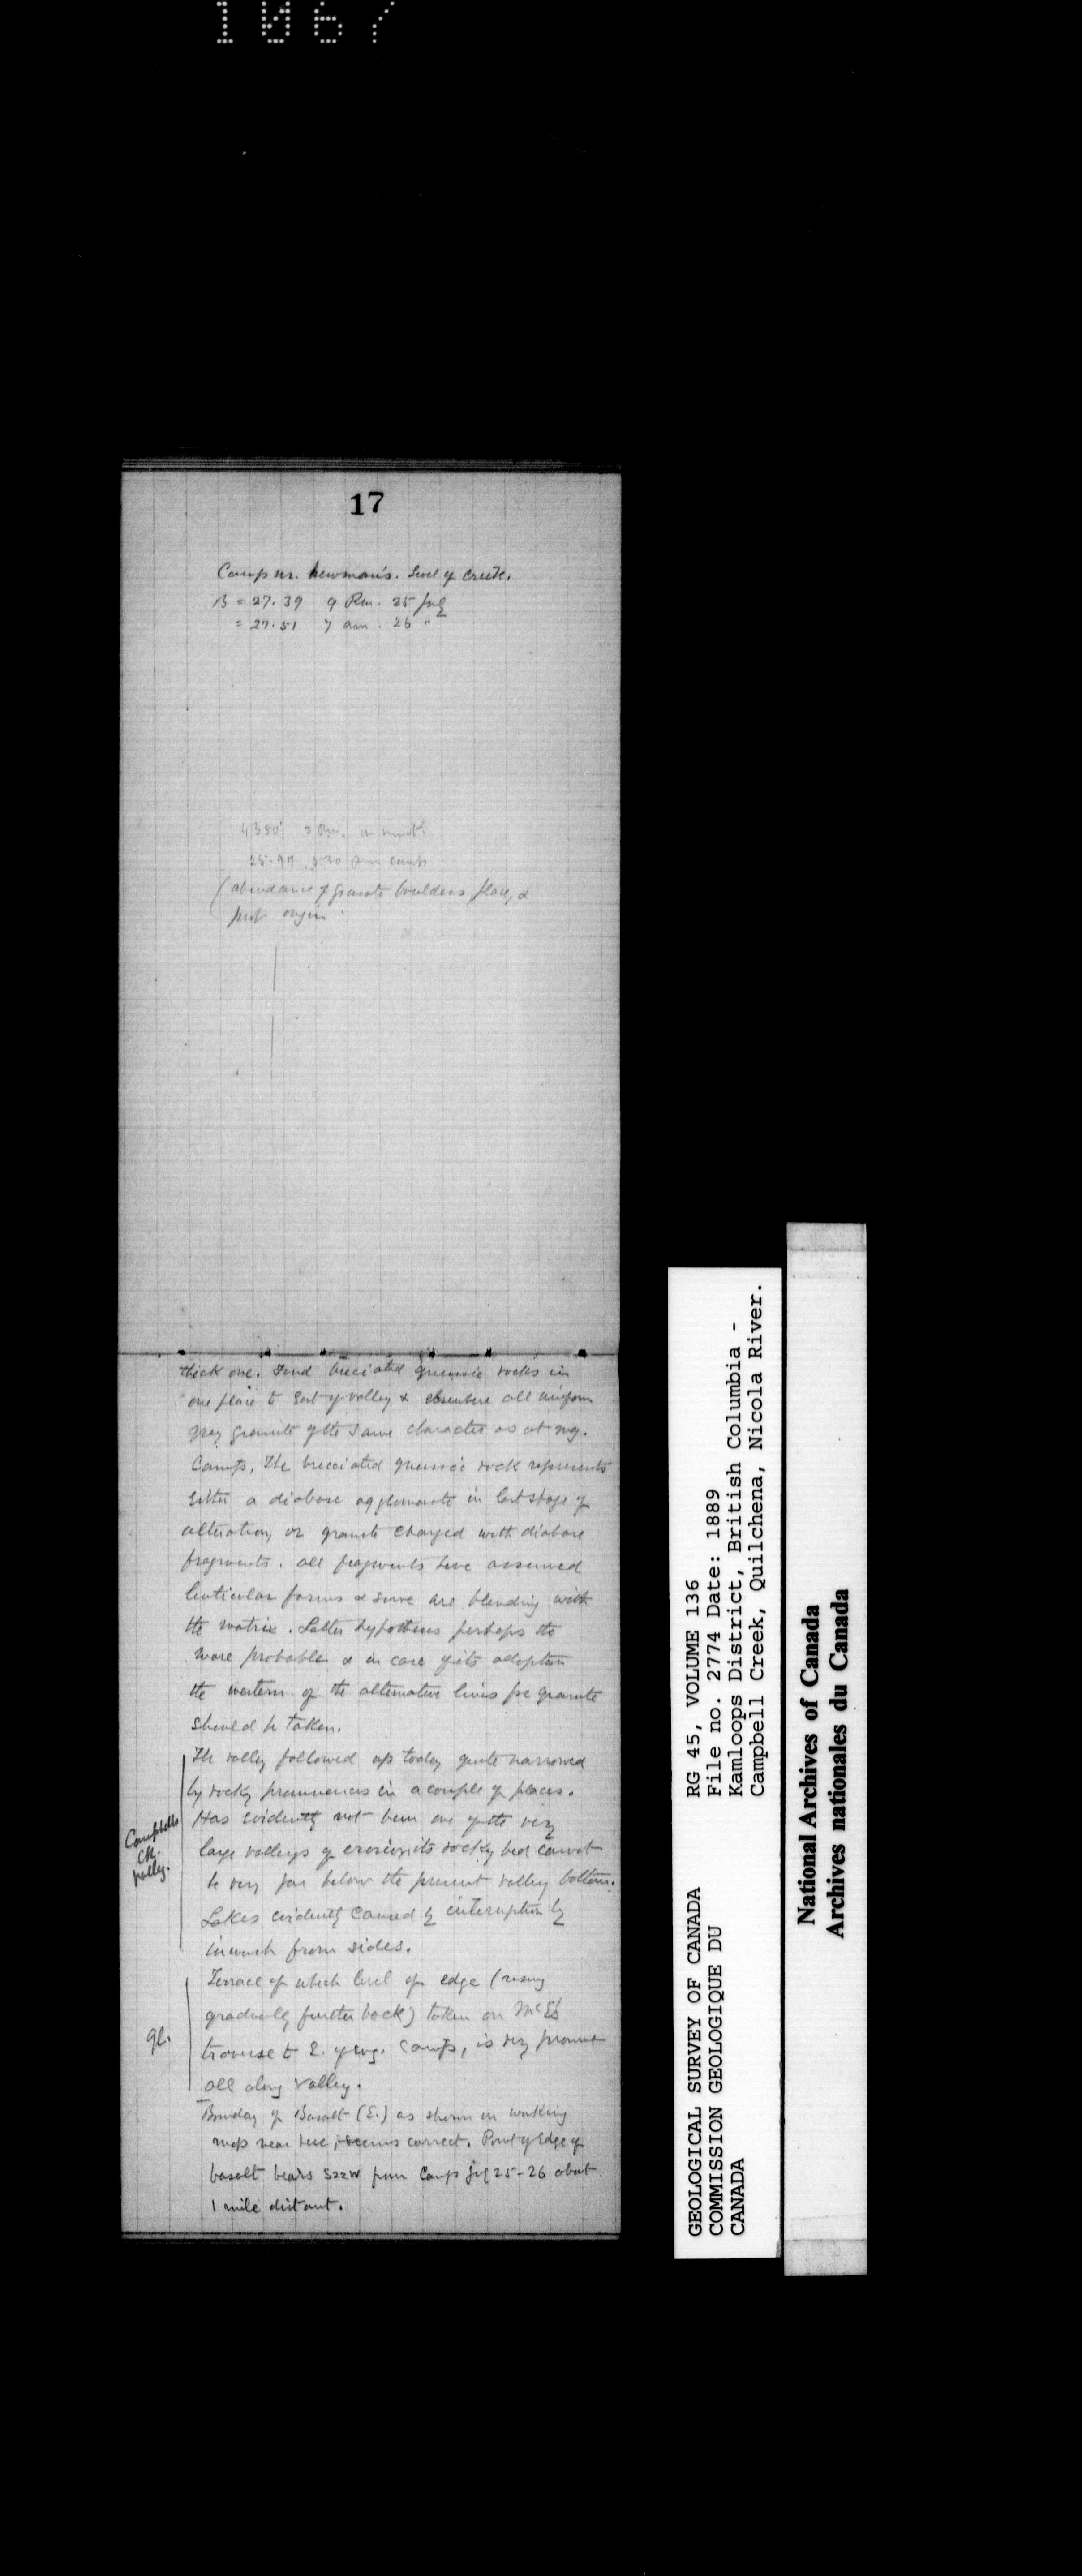 1067
17
Camp nr. Newman's. Level of Creek.
B = 27.39 9 P.m. 25 July
= 27.51 7 am. 26 "
4380'
25.97 5.30 pm camp
(abundance of granite boulders,
origin
thick one. Find brecciated gneissic rocks in
one place to East of valley & elsewhere all uniform
grey granite of the same character as at mg.
Camp. The brecciated gneissic rock represents
Either a diabase agglomerate in last stage of
alteration, or granite charged with diabase
fragments. all fragments have assumed
lenticular forms & some are blending with
the matrix. Latter hypothesis perhaps the
more probable & in case of its adoption
the western of the alternative lines for granite
should be taken.
The valley followed up today quite narrowed
by rocky prominences in a couple of places.
Has evidently not been one of the very
large valleys of erosion, its rocky bed cannot
be very far below the present valley bottom.
Lakes evidently caused by interruption by
inwash from sides.
Campbells
Ck.
valley.
Terrace of which level of edge (rising
gradually further back) taken on McE's
traverse to E. of evg. Camp, is very prominent
all along valley.
gl.
Boundary of Basalt (E.) as shown on working
map near here, seems correct. Point of Edge of
basalt bears S22W from Camp July 25-26 about
1 mile distant.
RG 45, VOLUME 136
File no. 2774 Date: 1889
Kamloops District, British Columbia -
Campbell Creek, Quilchena, Nicola River.
GEOLOGICAL SURVEY OF CANADA
COMMISSION GEOLOGIQUE DU
CANADA
National Archives of Canada
Archives nationales du Canada